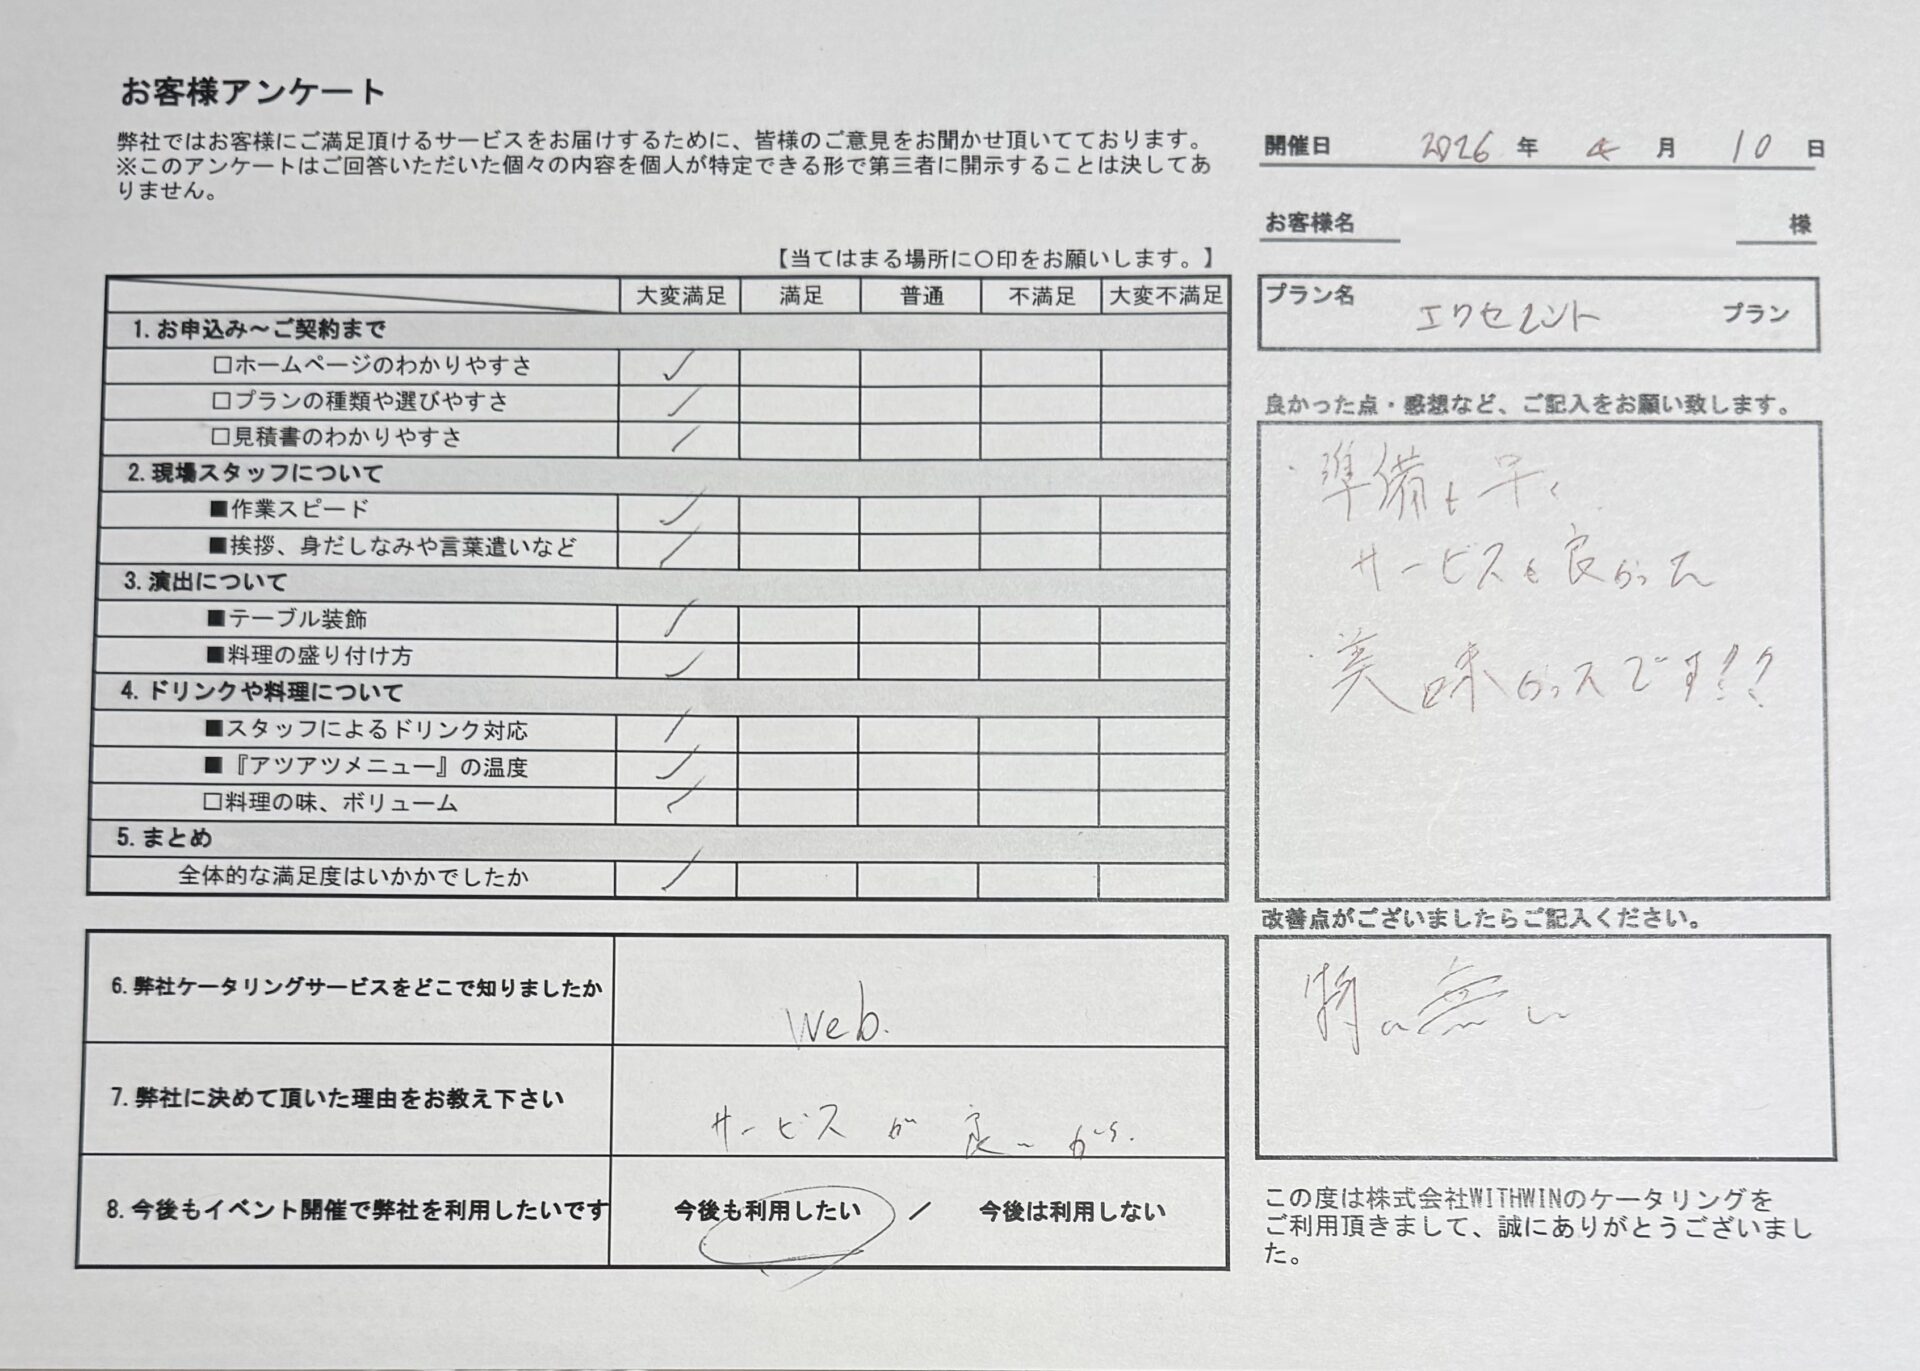 お客様アンケート
弊社ではお客様にご満足頂けるサービスをお届けするために、皆様のご意見をお聞かせ頂いてております。
※このアンケートはご回答いただいた個々の内容を個人が特定できる形で第三者に開示することは決してあ
りません。
開催日 2026 年 4 月 10 日
お客様名 様
【当てはまる場所に〇印をお願いします。】
大変満足 満足 普通 不満足 大変不満足
1. お申込み～ご契約まで
□ホームページのわかりやすさ ✓
□プランの種類や選びやすさ ✓
□見積書のわかりやすさ ✓
2. 現場スタッフについて
■作業スピード ✓
■挨拶、身だしなみや言葉遣いなど ✓
3. 演出について
■テーブル装飾 ✓
■料理の盛り付け方 ✓
4. ドリンクや料理について
■スタッフによるドリンク対応 ✓
■『アツアツメニュー』の温度 ✓
□料理の味、ボリューム ✓
5. まとめ
全体的な満足度はいかかでしたか ✓
6. 弊社ケータリングサービスをどこで知りましたか
Web.
7. 弊社に決めて頂いた理由をお教え下さい
サービスが良いから.
8. 今後もイベント開催で弊社を利用したいです
今後も利用したい ／ 今後は利用しない
プラン名 エクセレント プラン
良かった点・感想など、ご記入をお願い致します。
・準備も早く
サービスも良かった
・美味かったです!!
改善点がございましたらご記入ください。
特に無し
この度は株式会社WITHWINのケータリングを
ご利用頂きまして、誠にありがとうございまし
た。